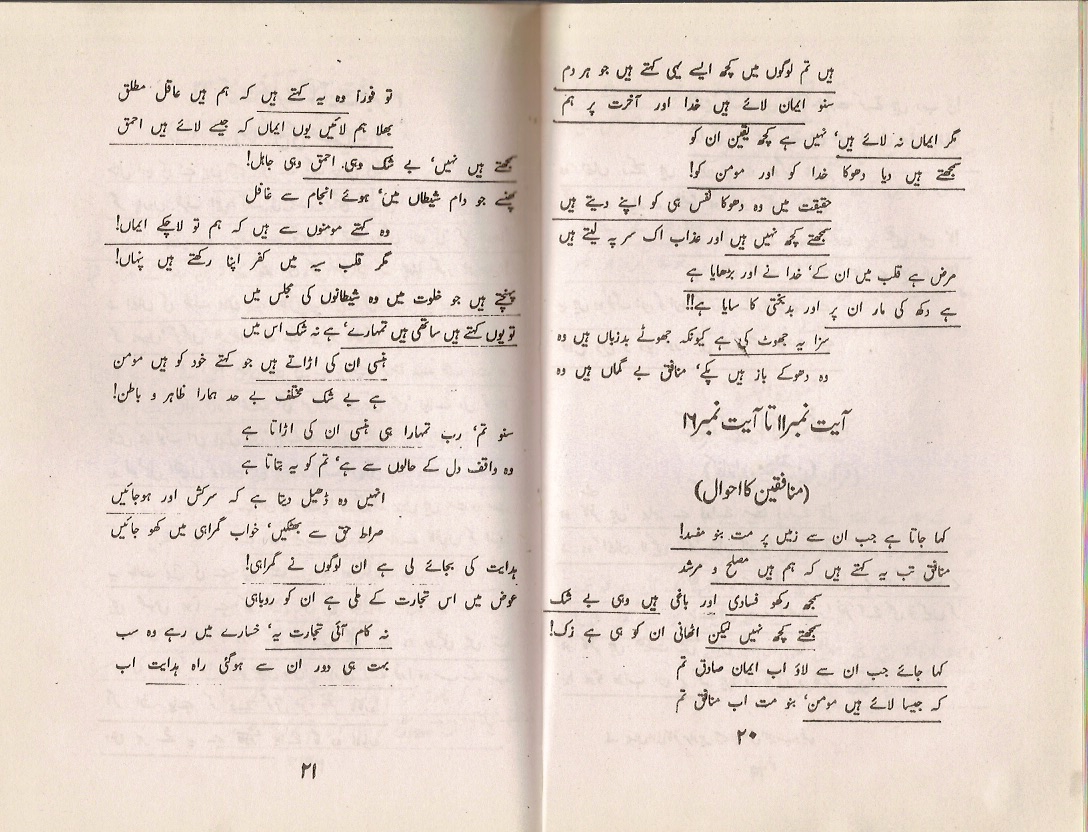 ہیں تم لوگوں میں کچھ ایسے یہی کہتے ہیں جو ہر دم
سنو ایمان لائے ہیں خدا اور آخرت پر ہم
مگر ایماں نہ لائے ہیں' نہیں ہے کچھ یقین ان کو
سمجھتے ہیں دیا دھوکا خدا کو اور مومن کو!
حقیقت میں وہ دھوکا نفس ہی کو اپنے دیتے ہیں
سمجھتے کچھ نہیں ہیں اور عذاب اک سر پہ لیتے ہیں
مرض ہے قلب میں ان کے' خدا نے اور بڑھایا ہے
ہے دکھ کی مار ان پر اور بدبختی کا سایا ہے!!
سزا یہ جھوٹ کی ہے کیونکہ جھوٹے بدزباں ہیں وہ
وہ دھوکے باز ہیں پکے' منافق بے گماں ہیں وہ
آیت نمبر ۱۱ تا آیت نمبر ۱۶
(منافقین کا احوال)
کہا جاتا ہے جب ان سے زمیں پر مت بنو مفسد!
منافق تب یہ کہتے ہیں کہ ہم ہیں مصلح و مرشد
سمجھ رکھو فسادی اور باغی ہیں وہی بے شک
سمجھتے کچھ نہیں لیکن اٹھانی ان کو ہی ہے زک!
کہا جائے جب ان سے لاؤ اب ایمان صادق تم
کہ جیسا لائے ہیں مومن' بنو مت اب منافق تم
۲۰
تو فوراً وہ یہ کہتے ہیں کہ ہم ہیں عاقل مطلق
بھلا ہم لائیں یوں ایماں کہ جیسے لائے ہیں احمق
سمجھتے ہیں نہیں' بے شک وہی احمق وہی جاہل!
پھنسے جو دام شیطاں میں' ہوئے انجام سے غافل
وہ کہتے مومنوں سے ہیں کہ ہم تو لاچکے ایماں!
مگر قلب سیہ میں کفر اپنا رکھتے ہیں پنہاں!
پہنچتے ہیں جو خلوت میں وہ شیطانوں کی مجلس میں
تو یوں کہتے ہیں ساتھی ہیں تمہارے' ہے نہ شک اس میں
ہنسی ان کی اڑاتے ہیں جو کہتے خود کو ہیں مومن
ہے بے شک مختلف بے حد ہمارا ظاہر و باطن!
سنو تم' رب تمہارا ہی ہنسی ان کی اڑاتا ہے
وہ واقف دل کے حالوں سے ہے' تم کو یہ بتاتا ہے
انہیں وہ ڈھیل دیتا ہے کہ سرکش اور ہوجائیں
صراط حق سے بھٹکیں' خواب گمراہی میں کھو جائیں
ہدایت کی بجائے لی ہے ان لوگوں نے گمراہی!
عوض میں اس تجارت کے ملی ہے ان کو روباہی
نہ کام آئی تجارت یہ' خسارے میں رہے وہ سب
بہت ہی دور ان سے ہوگئی راہ ہدایت اب
۲۱